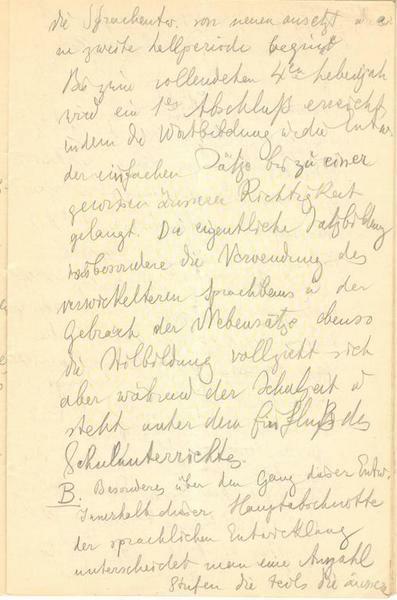 die Sprachentw. von neuem ansetzt u.
zweite Hellperiode beginnt
Bis zum vollendeten 4ten Lebensjah
wird ein 1ter Abschluß erreicht,
indem die Wortbildung u. die Entw.
der einfachen Sätze bis zu einer
gewissen äusseren Richtigkeit
gelangt. Die eigentliche Satzbildung
insbesondere die Verwendung des
verwickelteren Sprachbaus u der
Gebrauch der Nebensätze ebenso
die Stilbildung vollzieht sich
aber während der Schulzeit u
steht unter dem Einfluß des
Schulunterrichtes.
B. Besonderes über den Gang dieser Entw.
Innerhalb dieser Hauptabschnitte
der sprachlichen Entwicklung
unterscheidet man eine Anzahl
Stufen die teils die äussere